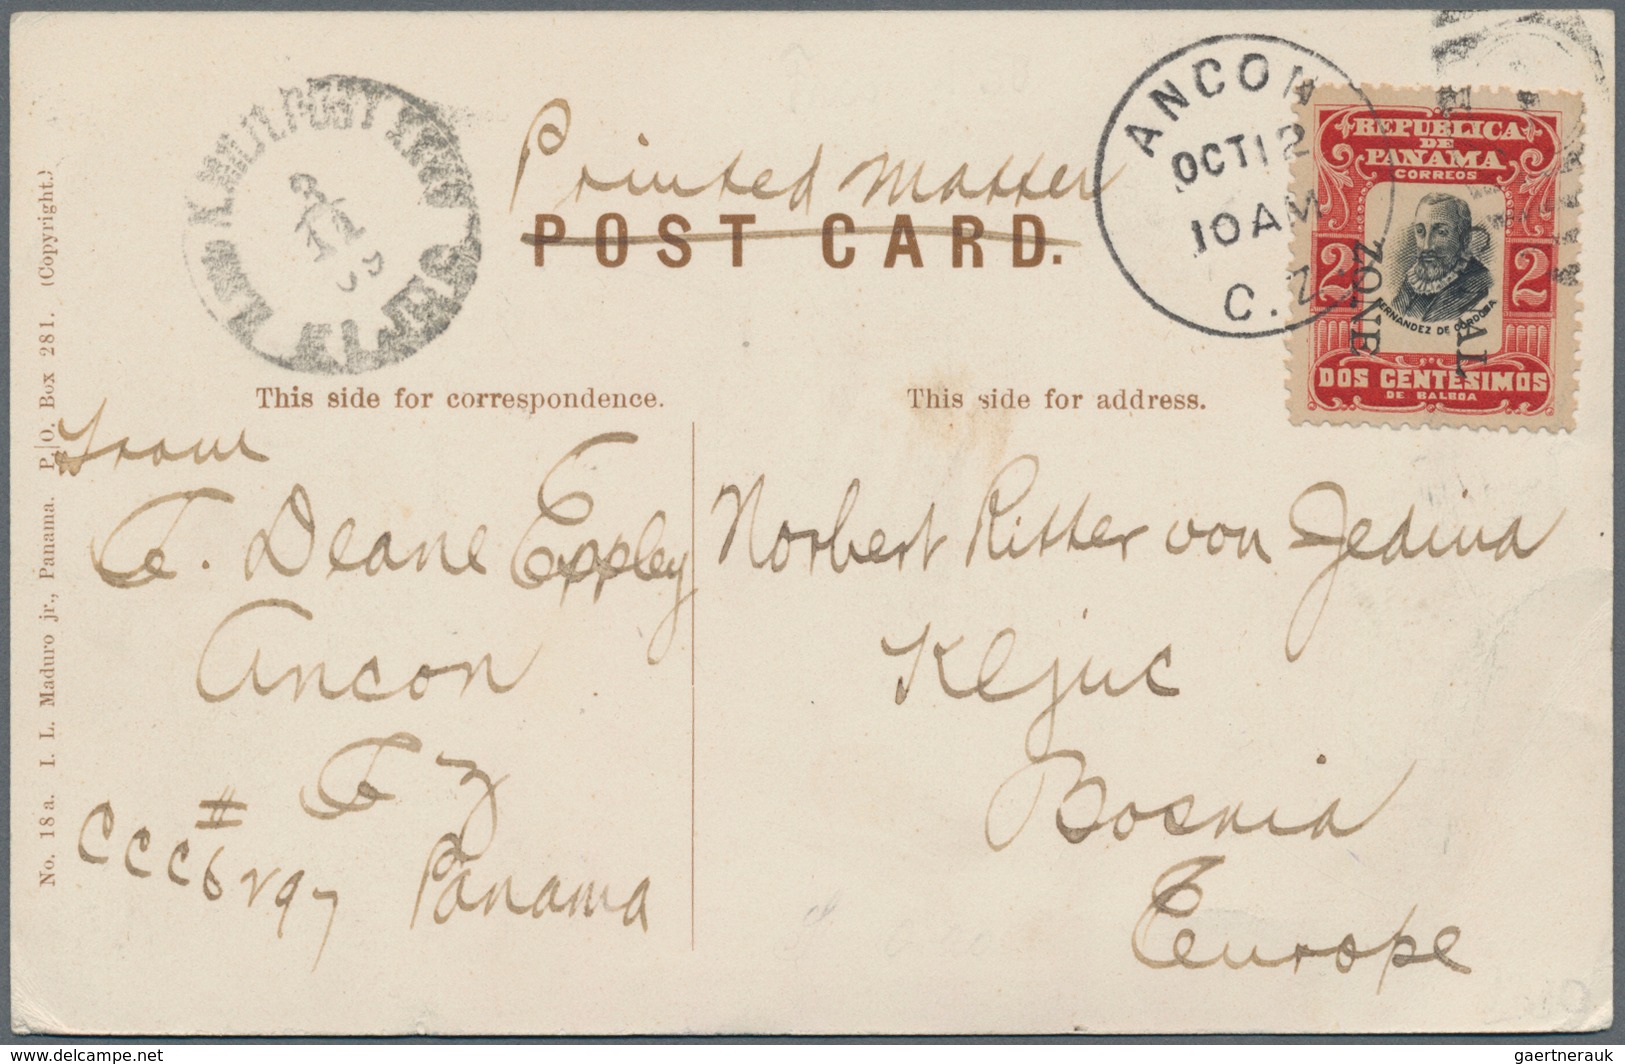 Printed matter
POST CARD.
ANCON
OCT 12
10 AM
C. Z.
REPUBLICA
DE
PANAMA
CORREOS
2 2
FERNANDEZ DE CORDOBA
CANAL
ZONE
DOS CENTESIMOS
DE BALBOA
K.
MILIT. POST
3
11
KLJUC
This side for correspondence.
This side for address.
from
C. Deane Eppley
Ancon
C Z
Panama
CCC # 6297
Norbert Ritter von Jedina
Kljuc
Bosnia
Europe
No. 18 a. I. L. Maduro jr., Panama. P. O. Box 281. (Copyright.)
gaertnerauk @ delcampe.net